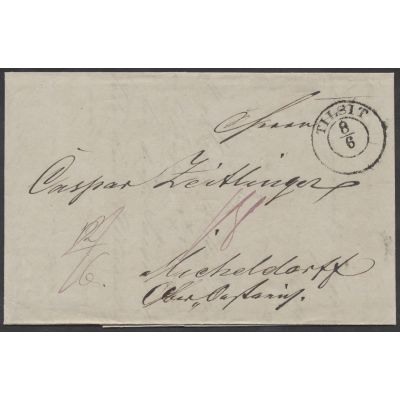 TILSIT
8/6
Herrn
Caspar Zeitlinger
in
Micheldorff
Ober Oestreich.